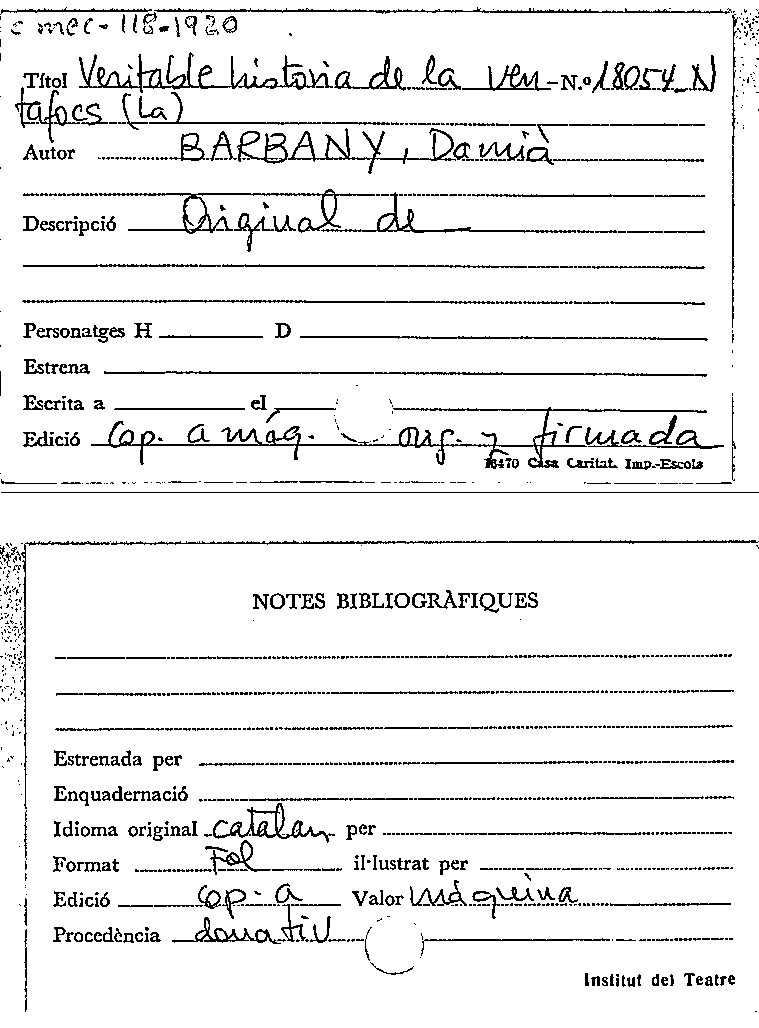 c mec-118-1920
Títol Veritable historia de la ven-N.º 18054_N
tafocs (La)
Autor BARBANY, Damià
Descripció Original de
Personatges H D
Estrena
Escrita a el
Edició Cop. a máq. orig. y firmada
16470 Casa Caritat. Imp.-Escola
NOTES BIBLIOGRÀFIQUES
Estrenada per
Enquadernació
Idioma original catalan per
Format Fol il·lustrat per
Edició Cop. a Valor máquina
Procedència donatiu
Institut del Teatre